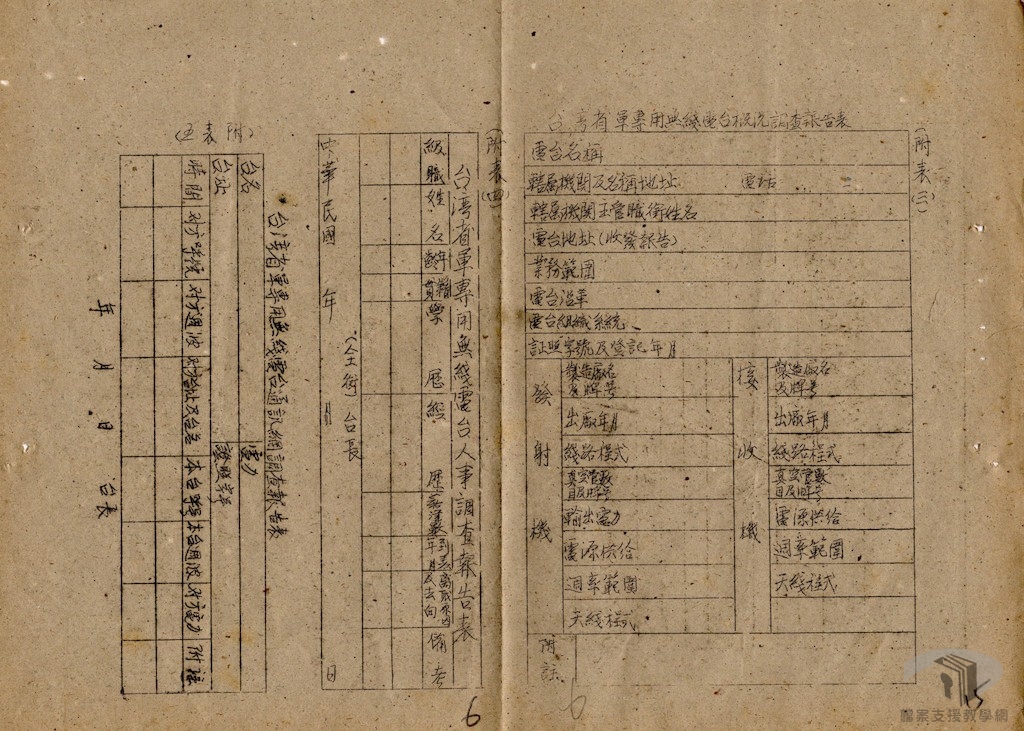 (附表三)
台湾省軍專用無綫電台概況調查報告表
電台名稱
轄属機関及名稱地址 電话
轄属機関主管職銜姓名
電台地址(收發報告)
業務範圍
電台沿革
電台組織系統
証照字號及登記年月
發射機
製造廠名及牌号
出厰年月
綫路程式
真空管数目及牌号
輸出電力
電源供给
週率範圍
天綫程式
接收機
製造廠名及牌号
出廠年月
綫路程式
真空管数目及牌号
電源供给
週率範圍
天綫程式
附註
6
15
(附表四)
台湾省軍專用無綫電台人事調查報告表
級職
姓名
年齡
籍貫
學歷
經歷
到差年月
離職原因及去向
備考
中華民國 年 月 日
(全銜)台長
6
(附表五)
台湾省軍專用無綫電台通訊網調查報告表
台名
台址
電力
證照字号
時間
对方呼號
对方週波
对方地址及台名
本台呼號
本台週波
对方電力
附註
年 月 日 台長
檔案支援教學網